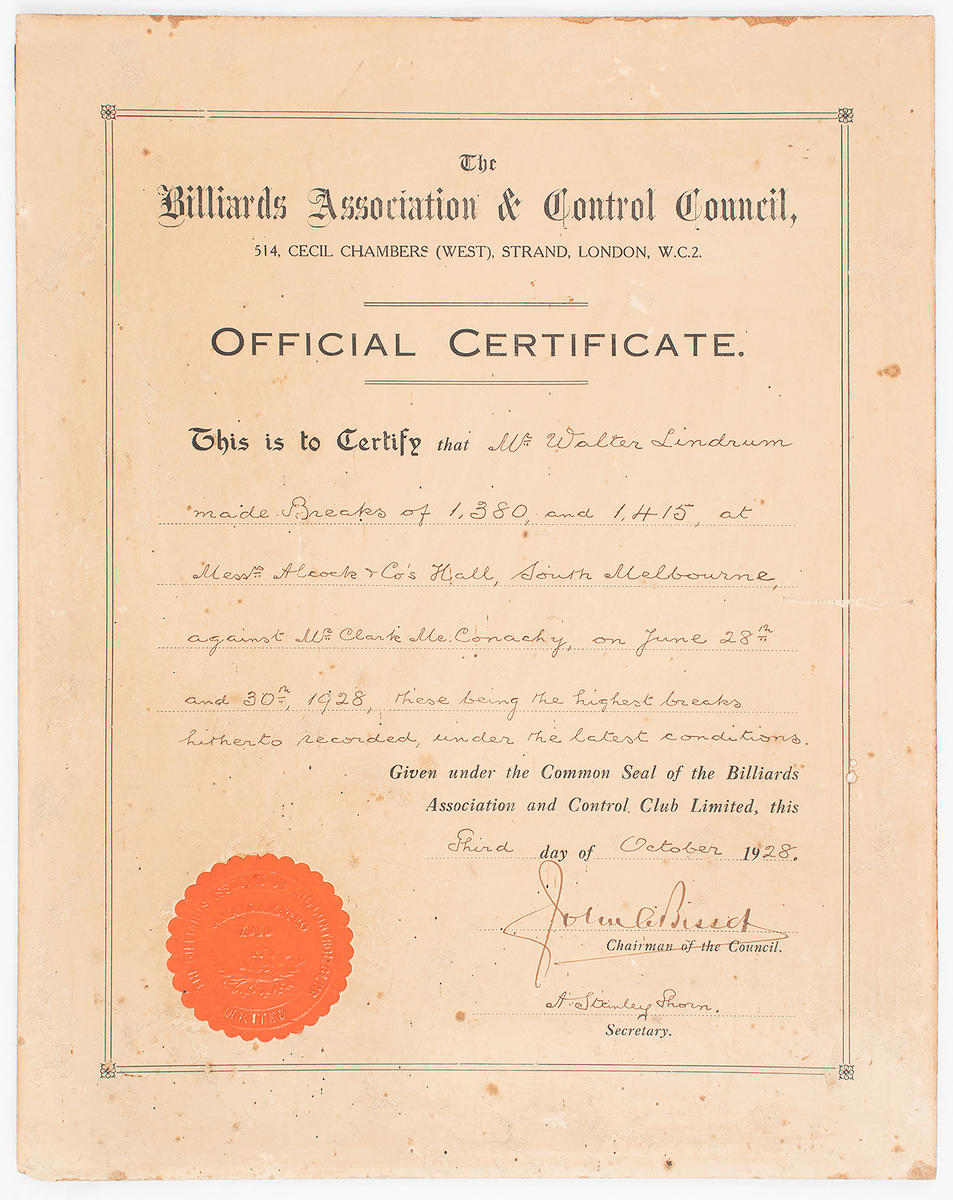 The
Billiards Association & Control Council,
514, CECIL CHAMBERS (WEST), STRAND, LONDON, W.C.2.
OFFICIAL CERTIFICATE.
This is to Certify that Mr. Walter Lindrum
made Breaks of 1,380, and 1,415, at
Messrs. Alcock & Co's Hall, South Melbourne,
against Mr. Clark Mc.Conachy, on June 28th
and 30th, 1928, these being the highest breaks
hitherto recorded, under the latest conditions.
Given under the Common Seal of the Billiards
Association and Control Club Limited, this
Third day of October 1928.
John C Bisset
Chairman of the Council.
A. Stanley Thorn.
Secretary.
THE BILLIARDS ASSOCIATION AND CONTROL CLUB
LIMITED